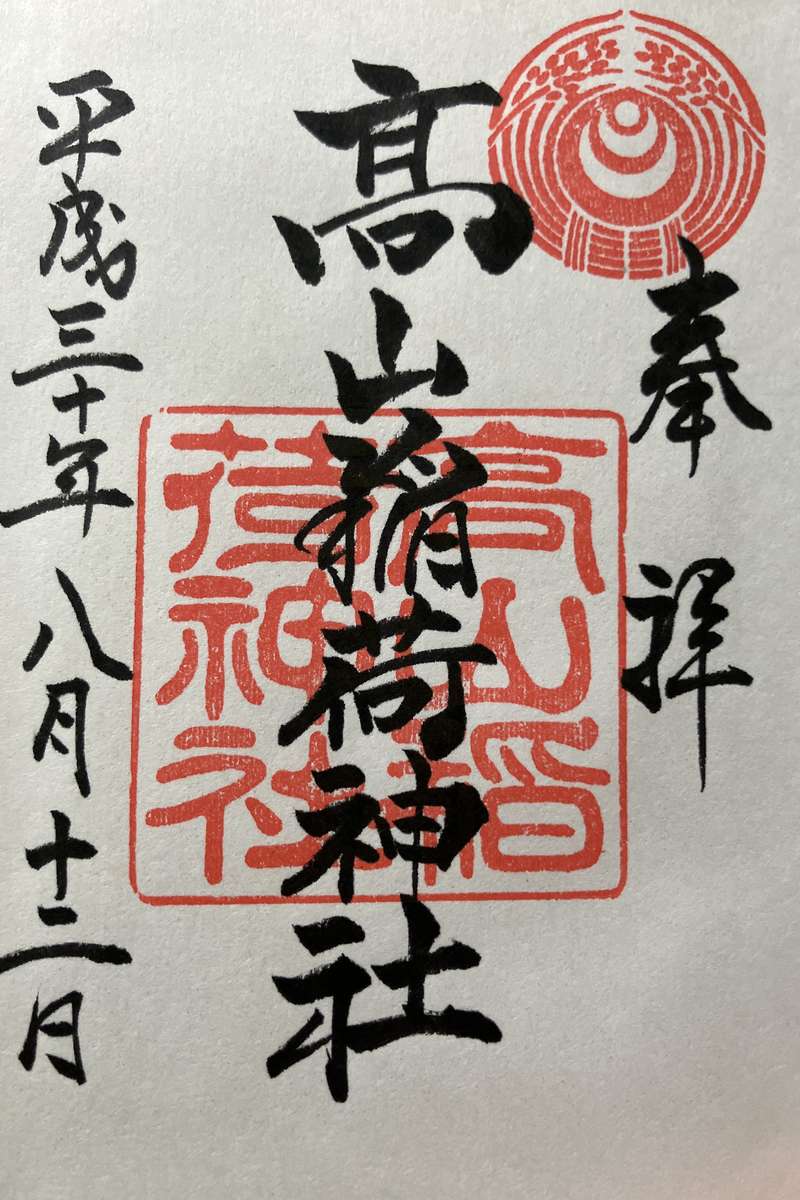 奉拝
高山稲荷神社
高山稲
荷神社
平成三十年八月十二日